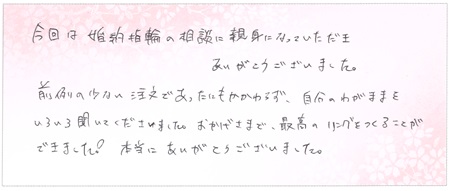 今回は婚約指輪の相談に親身になっていただき
ありがとうございました。
前例の少ない注文であったにもかかわらず、自分のわがままを
いろいろ聞いてくださいました。おかげさまで、最高のリングをつくることが
できました! 本当にありがとうございました。